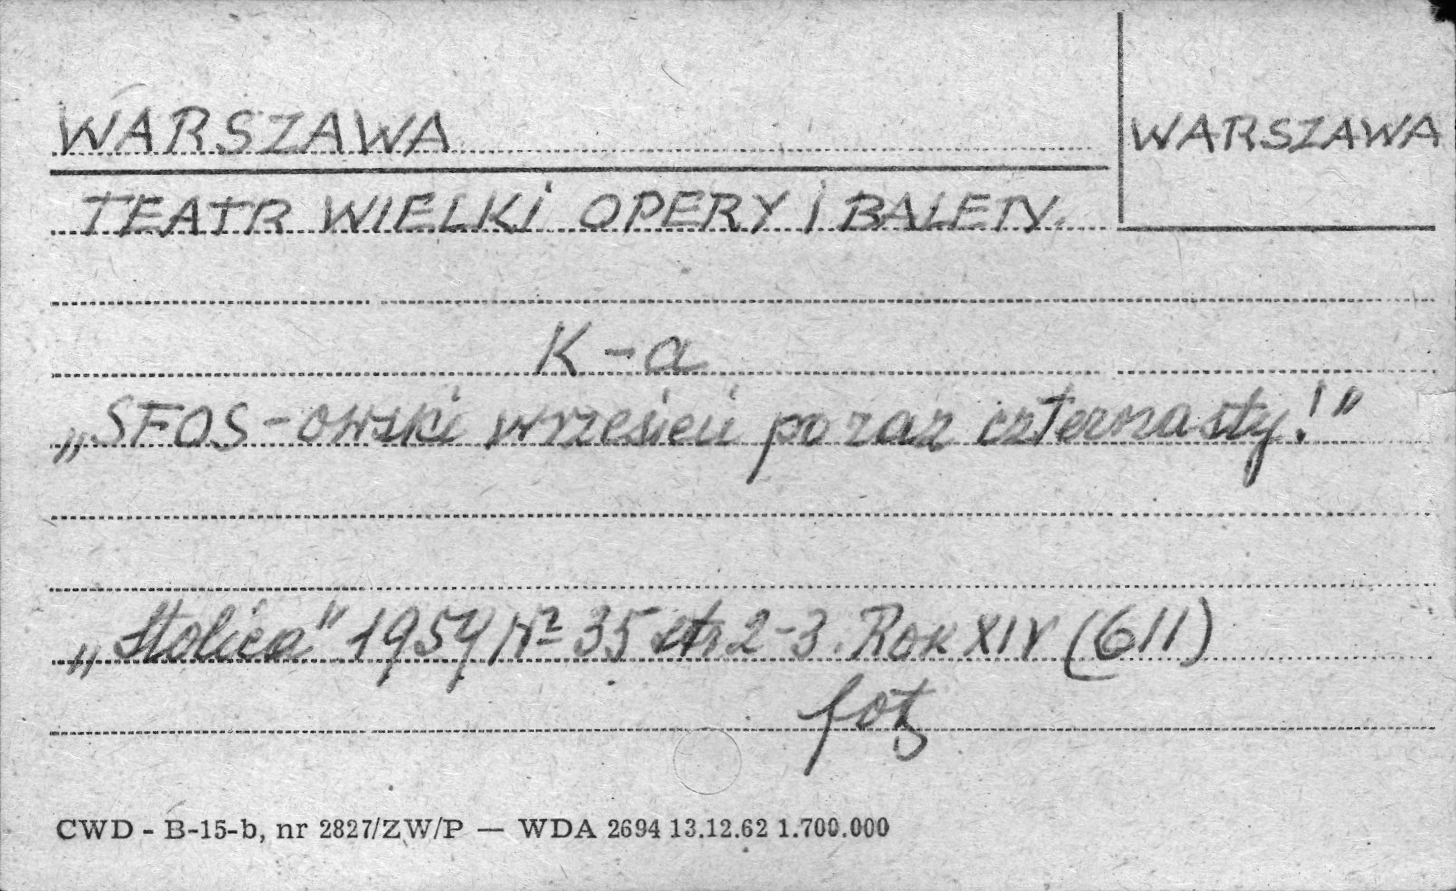 WARSZAWA
WARSZAWA
TEATR WIELKI OPERY I BALETY.
K-a
„SFOS-owski wrzesień po raz czternasty!"
„Stolica" 1959 Nº 35 str 2-3. Rok XIV (611)
fot
CWD - B-15-b, nr 2827/ZW/P — WDA 2694 13.12.62 1.700.000